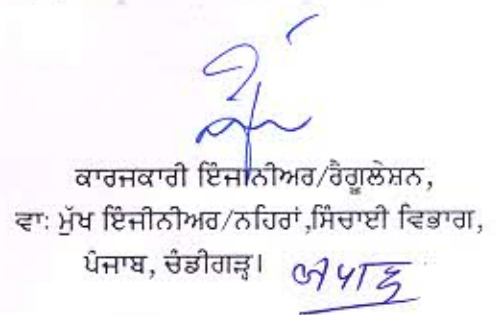 ਕਾਰਜਕਾਰੀ ਇੰਜਾਨੀਅਰ/ਰੈਗੂਲੇਸ਼ਨ,
ਵਾ: ਮੁੱਖ ਇੰਜੀਨੀਅਰ/ਨਹਿਰਾਂ,ਸਿੰਚਾਈ ਵਿਭਾਗ,
ਪੰਜਾਬ, ਚੰਡੀਗੜ੍ਹ।